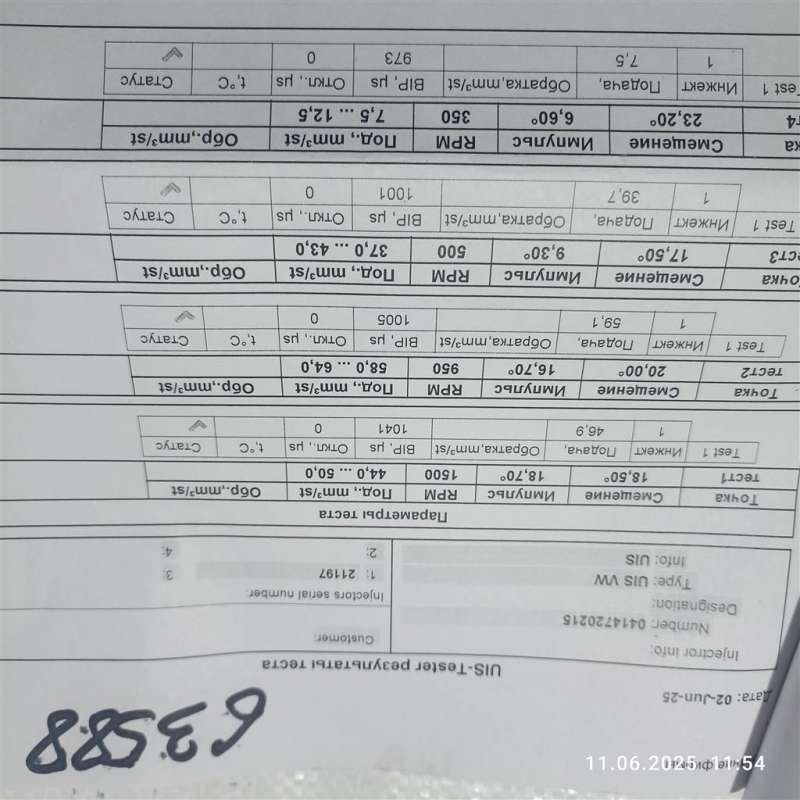 Дата: 02-Jun-25
63588
UIS-Tester результаты теста
Injectror info:
Customer:
Number: 0414720215
Designation:
Injectors serial number:
Type: UIS VW
1: 21197
3:
Info: UIS
2:
4:
Параметры теста
Точка Смещение Импульс RPM Под., mm³/st Обр.,mm³/st
тест1 18,50° 18,70° 1500 44,0 ... 50,0
Test 1 Инжект Подача, Обратка,mm³/st BIP, µs Откл., µs t,°C Статус
1 46,9 1041 0
Точка Смещение Импульс RPM Под., mm³/st Обр.,mm³/st
тест2 20,00° 16,70° 950 58,0 ... 64,0
Test 1 Инжект Подача, Обратка,mm³/st BIP, µs Откл., µs t,°C Статус
1 59,1 1005 0
Точка Смещение Импульс RPM Под., mm³/st Обр.,mm³/st
ест3 17,50° 9,30° 500 37,0 ... 43,0
Test 1 Инжект Подача, Обратка,mm³/st BIP, µs Откл., µs t,°C Статус
1 39,7 1001 0
ка Смещение Импульс RPM Под., mm³/st Обр.,mm³/st
т4 23,20° 6,60° 350 7,5 ... 12,5
est 1 Инжект Подача, Обратка,mm³/st BIP, µs Откл., µs t,°C Статус
1 7,5 973 0
11.06.2025 11:54